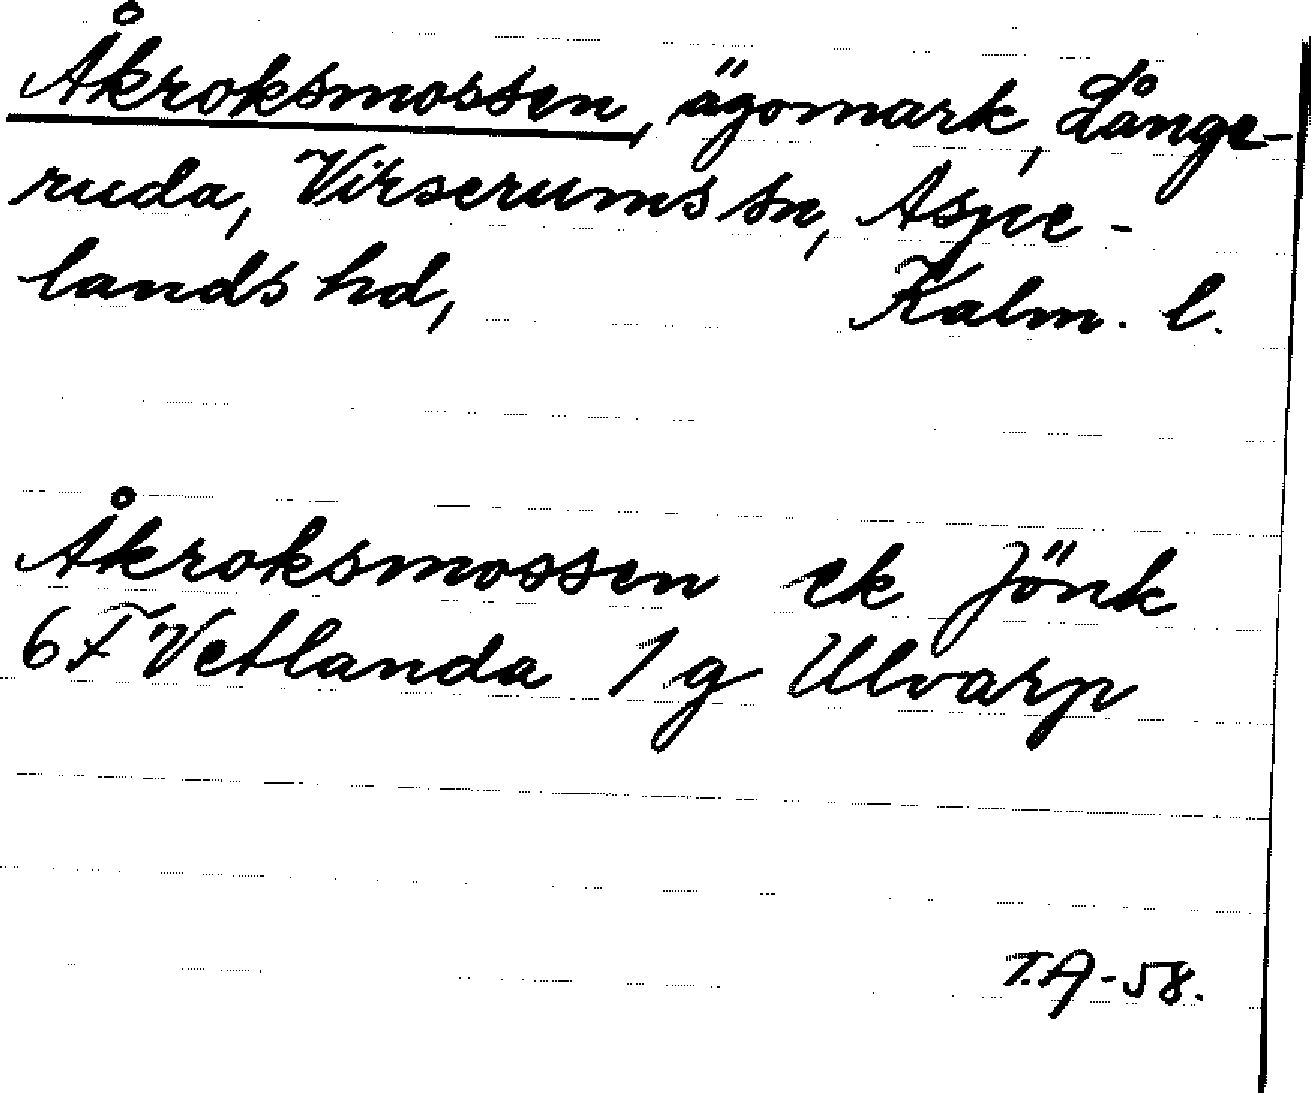 Åkroksmossen, ägomark, Långe-
ruda, Virserums sn, Aspe-
lands hd, Kalm. l.
Åkroksmossen ek Jönk
6 F Vetlanda 1 g Ulvarp
T.A-58.